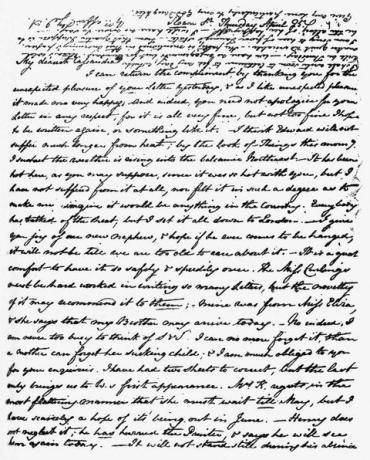 Sloane St Thursday April 25
My dearest Cassandra
I can return the compliment by thanking you for the
unexpected pleasure of your Letter yesterday, & as I like unexpected pleasure,
it made me very happy; And indeed, you need not apologise for your
Letter in any respect, for it is all very fine, but not too fine I hope
to be written again, or something like it. I think Edward will not
suffer much longer from heat; by the look of Things this morng
I suspect the weather is rising into the balsamic Northeast. It has been
hot here, as you may suppose, since it was so hot with you, but I
have not suffered from it at all, nor felt it in such a degree as to
make me imagine it would be anything in the Country. Everybody
has talked of the heat, but I set it all down to London. — I give
you joy of our new nephew, & hope if he ever comes to be hanged,
it will not be till we are too old to care about it. — It is a great
comfort to have it so safely & speedily over. The Miss Curlings
must be hard worked in writing so many Letters, but the novelty
of it may recommend it to them; — mine was from Miss Eliza,
& she says that my Brother may arrive today. — No indeed, I
am never too busy to think of S & S. I can no more forget it, than
a mother can forget her sucking child; & I am much obliged to you
for your enquiries. I have had two sheets to correct, but the last
only brings us to W.s first appearance. Mrs K. regrets in the
most flattering manner that she must wait till May, but I
have scarcely a hope of its being out in June. — Henry does
not neglect it; he has hurried the Printer, & says he will see
him again today. — It will not stand still during his absence